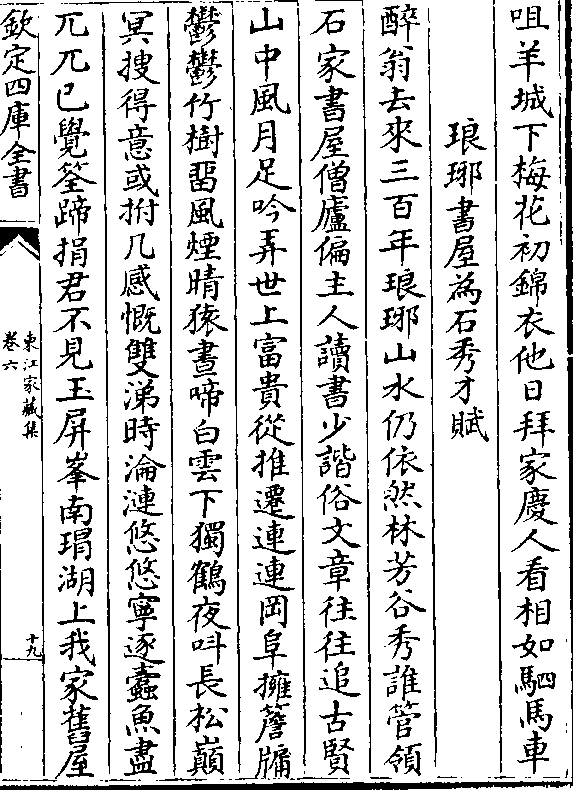 咀羊城下梅花初錦衣他日拜家慶人看相如駟馬車
琅琊書屋為石秀才賦
醉翁去來三百年琅琊山水仍依然林芳谷秀誰管領
石家書屋僧廬偏主人讀書少諧俗文章往往追古賢
山中風月足吟弄世上富貴從推遷連連岡阜擁簷牖
鬱鬱竹樹畱風煙晴猿晝啼白雲下獨鶴夜呌長松巔
冥搜得意或拊几感慨雙涕時淪漣悠悠寧逐蠹魚盡
兀兀已覺筌蹄捐君不見玉屏峯南瑁湖上我家舊屋
欽定四庫全書
東江家藏集
卷六
十九